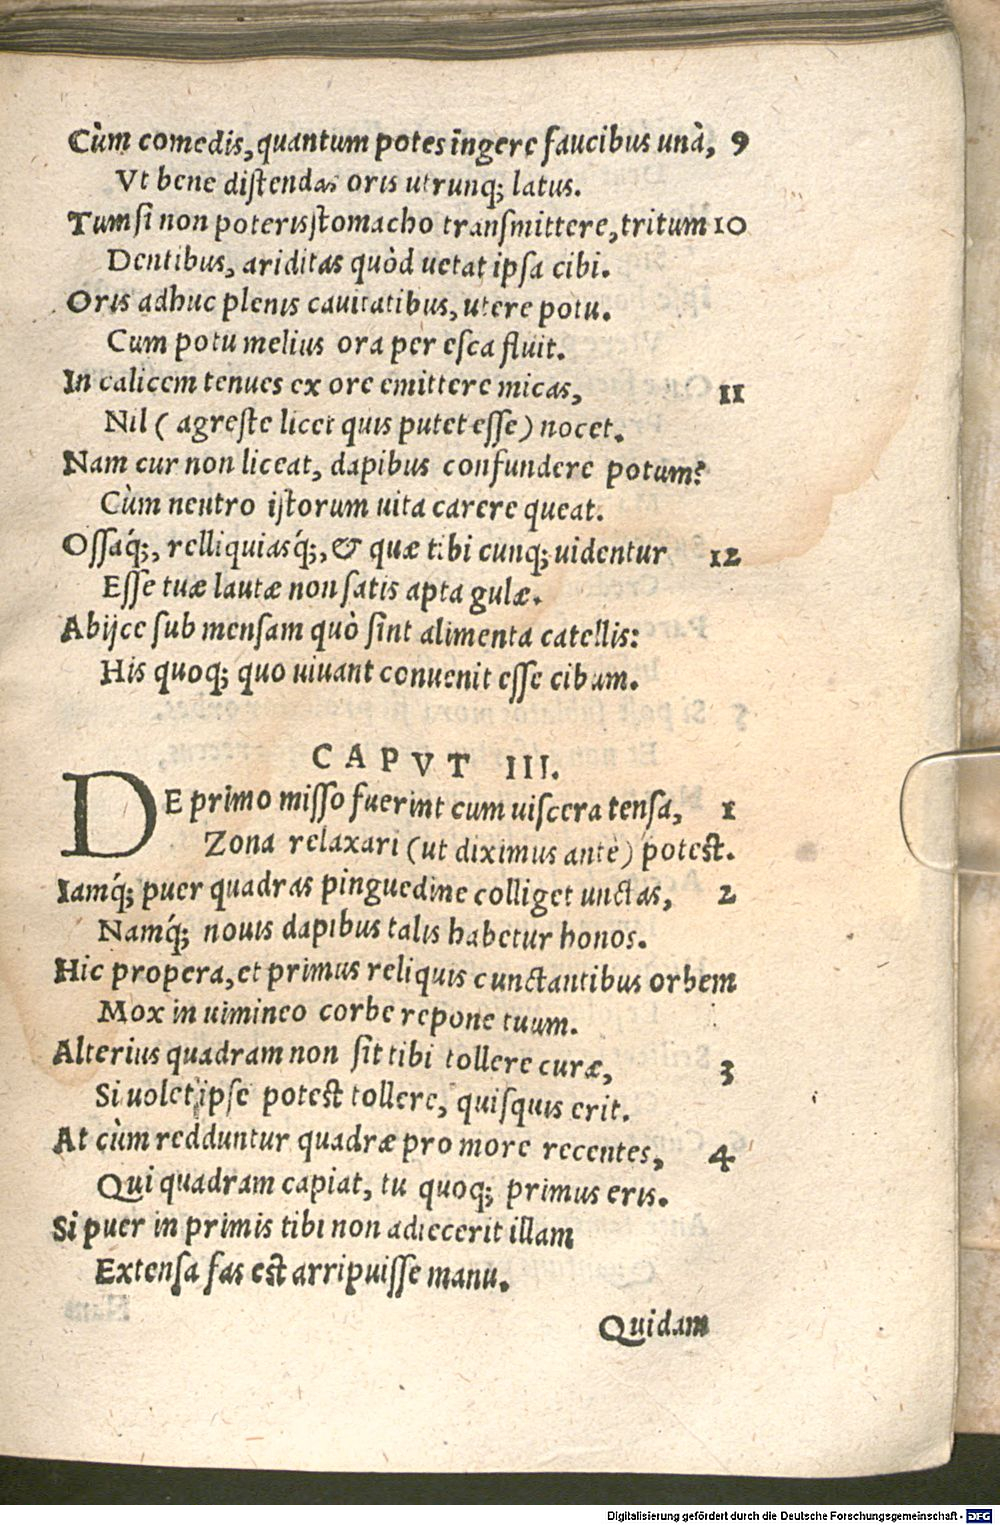 Cùm comedis, quantum potes ingere faucibus unà, 9
Vt bene distendas oris utrunq; latus.
Tum si non poteris stomacho transmittere, tritum 10
Dentibus, ariditas quòd uetat ipsa cibi.
Oris adhuc plenis cauitatibus, utere potu.
Cum potu melius ora per esca fluit.
In calicem tenues ex ore emittere micas, 11
Nil ( agreste licet quis putet esse ) nocet.
Nam cur non liceat, dapibus confundere potum?
Cùm neutro istorum uita carere queat.
Ossaq́;, relliquiasq́;, & quæ tibi cunq; uidentur 12
Esse tuæ lautæ non satis apta gulæ.
Abijce sub mensam quò sint alimenta catellis:
His quoq; quo uiuant conuenit esse cibum.
CAPVT III.
DE primo misso fuerint cum uiscera tensa, 1
Zona relaxari (ut diximus antè) potest.
Iamq́; puer quadras pinguedine colliget unctas, 2
Namq́; nouis dapibus talis habetur honos.
Hic propera, et primus reliquis cunctantibus orbem
Mox in uimineo corbe repone tuum.
Alterius quadram non sit tibi tollere curæ, 3
Si uolet ipse potest tollere, quisquis erit.
At cùm redduntur quadræ pro more recentes, 4
Qui quadram capiat, tu quoq; primus eris.
Si puer in primis tibi non adiecerit illam
Extensa fas est arripuisse manu.
Quidam
Digitalisierung gefördert durch die Deutsche Forschungsgemeinschaft - DFG